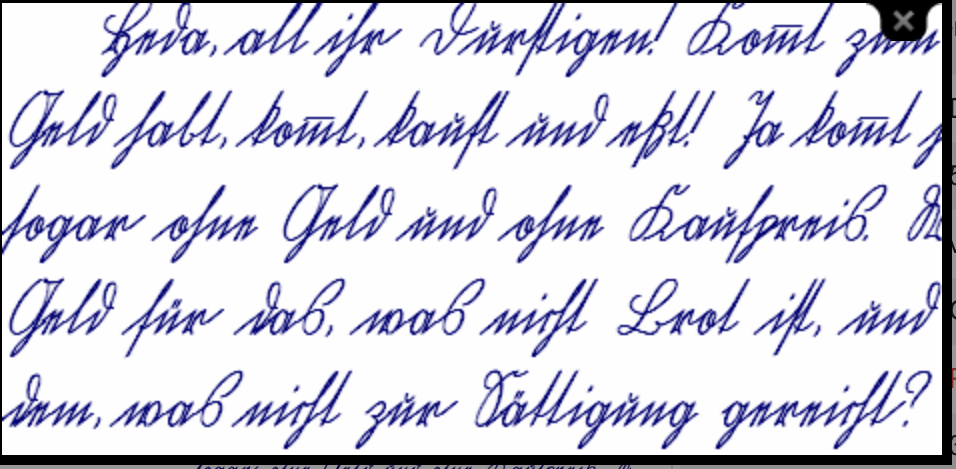 Heda, all ihr Durstigen! Kom̅t zum
Geld habt, kom̅t, kauft und eßt! Ja kom̅t
sogar ohne Geld und ohne Kaufpreis.
Geld für das, was nicht Brot ist, und
dem, was nicht zur Sättigung gereicht?